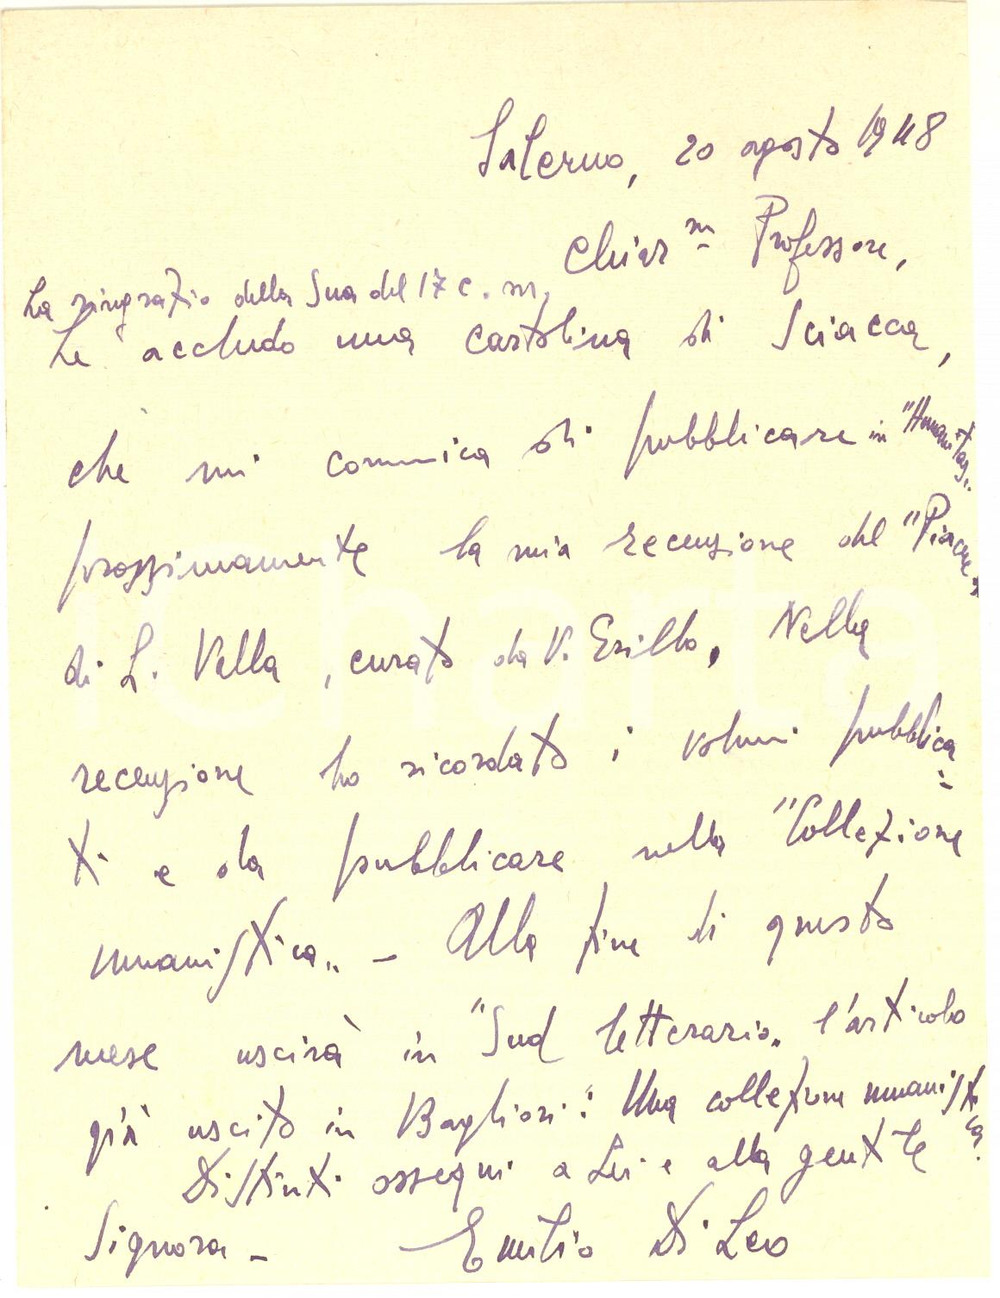 Salerno, 20 agosto 1948
Chiar.mo Professore,
La ringrazio della Sua del 17 c. m.
Le accludo una cartolina di Sciacca,
che mi comunica di pubblicare in "Humanitas„
prossimamente la mia recensione del
di L. Valla, curato da V. Nella
recensione ho ricordato i volumi pubblica=
ti e da pubblicare nella "Collezione
umanistica„. - Alla fine di questo
mese uscirà in "Sud letterario„ l'articolo
già uscito in : Una collezione umanistica.
Distinti ossequi a Lei e alla gentile
Signora - Emilio Di Leo
iCharta